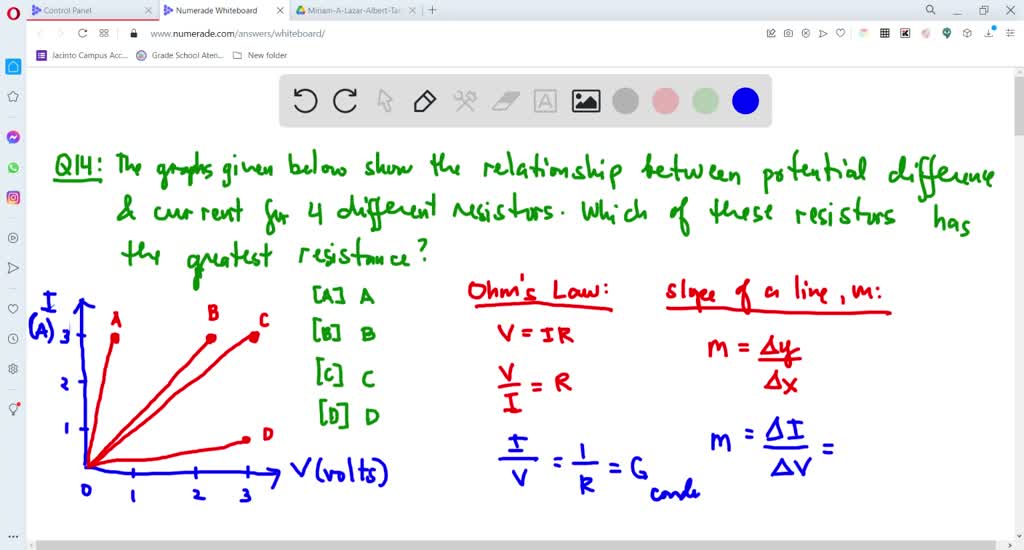 Control Panel
Numerade Whiteboard
Miriam-A-Lazar-Albert-Tar
www.numerade.com/answers/whiteboard/
Jacinto Campus Acc...
Grade School Aten...
New folder
Q14: The graphs given below show the relationship between potential difference
& current for 4 different resistors. Which of these resistors has
the greatest resistance?
[A] A
[B] B
[C] C
[D] D
I
(A)
3
2
1
0
1
2
3
V (volts)
A
B
C
D
Ohm's Law:
V = IR
V/I = R
I/V = 1/R = G
conde
slope of a line, m:
m = Δy/Δx
m = ΔI/ΔV =